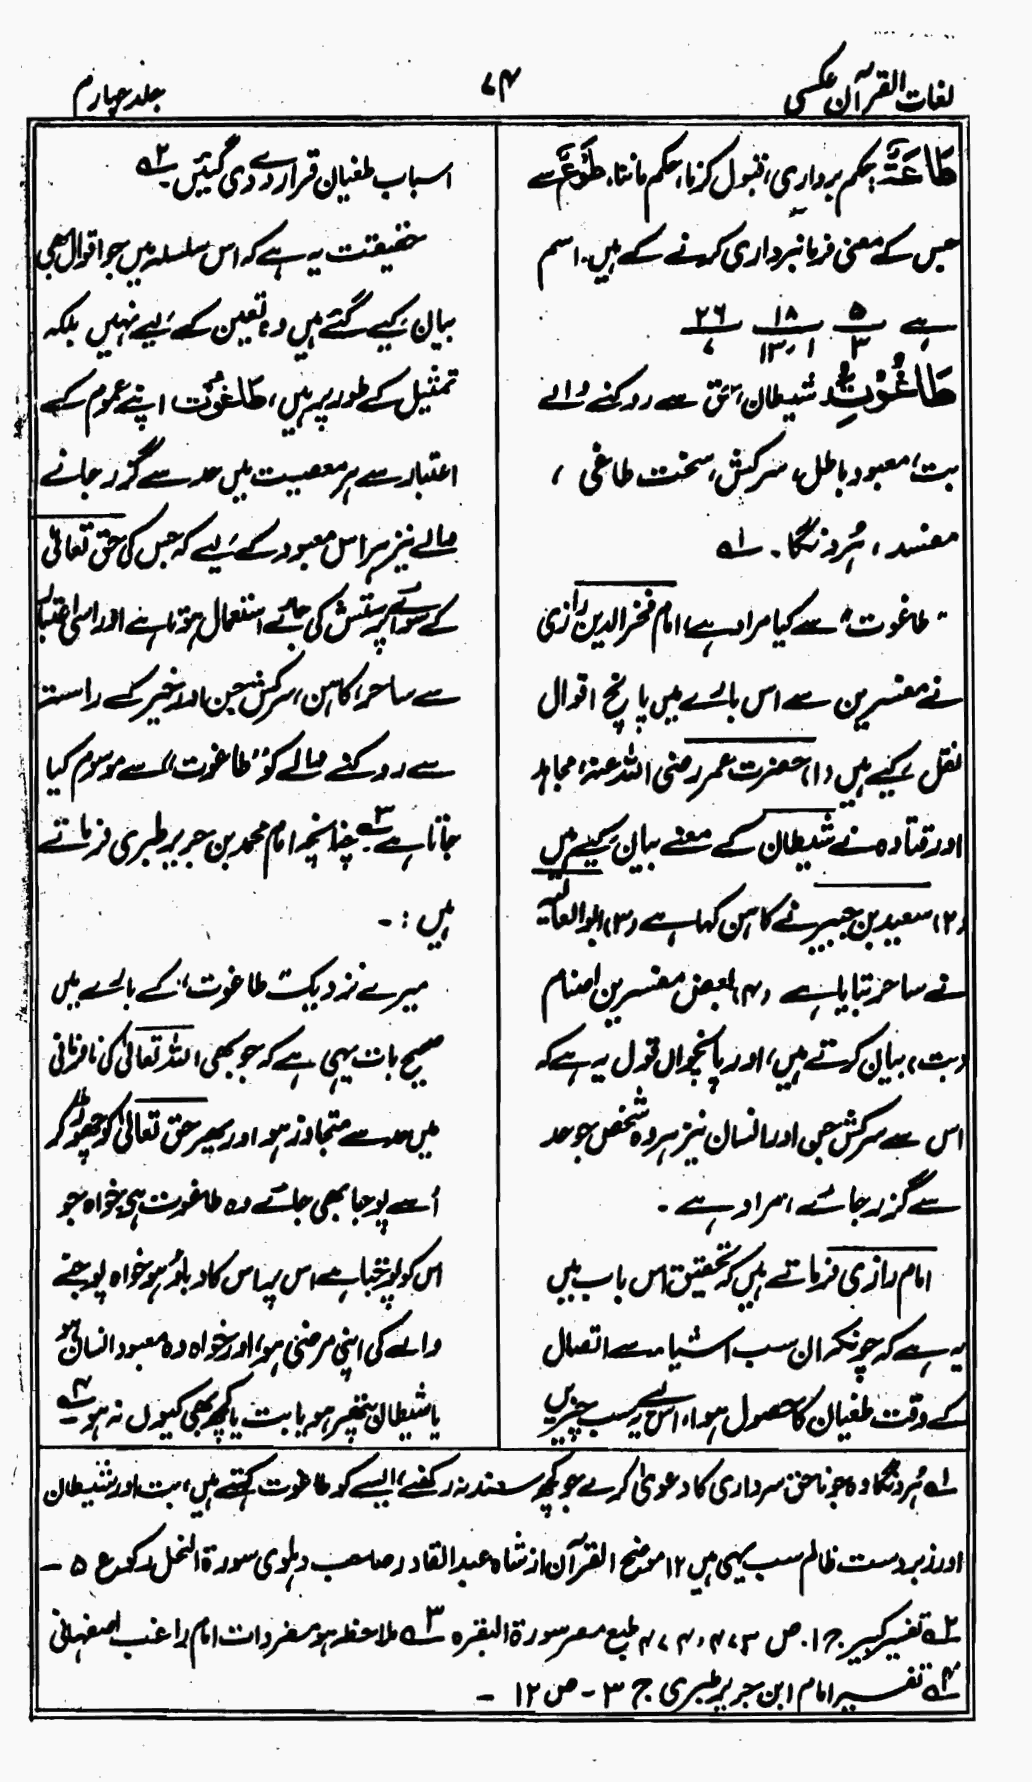 لغات القرآن عکسی
۷۴
جلد چہارم
طَاعَۃٌ: حکم برداری، قبول کرنا، حکم ماننا، طَوْعٌ سے
جس کے معنی فرمانبرداری کرنے کے ہیں. اسم
ہے ۵/۳ ۱۸/۱۳،۱ ۲۶/۷
طَاغُوْتِ: شیطان، حق سے روکنے والے
بت، معبود باطل، سرکش، سخت طاغی،
مفسد، ہُردنگا. ۱ه
"طاغوت" سے کیا مراد ہے، امام فخر الدین رازی
نے مفسرین سے اس بارے میں پانچ اقوال
نقل کیے ہیں (۱) حضرت عمر رضی اللہ عنہ، مجاہد
اور قتادہ نے شیطان کے معنے بیان کیے ہیں
(۲) سعید بن جبیر نے کاہن کہا ہے (۳) ابو العالیہ
نے ساحر بتایا ہے (۴) بعض مفسرین اصنام
(بت) بیان کرتے ہیں، اور پانچواں قول یہ ہے کہ
اس سے سرکش جن اور انسان نیز ہر وہ شخص جو حد
سے گزر جائے، مراد ہے.
امام رازی فرماتے ہیں کہ تحقیق اس باب میں
یہ ہے کہ چونکہ ان سب اشیاء سے اتصال
کے وقت طغیان کا حصول ہوا، اس لیے یہ سب چیزیں
اسباب طغیان قرار دے دی گئیں۔ ۲ه
حقیقت یہ ہے کہ اس سلسلہ میں جو اقوال بھی
بیان کیے گئے ہیں وہ تعین کے لیے نہیں بلکہ
تمثیل کے طور پر ہیں، طاغوت اپنے عموم کے
اعتبار سے ہر معصیت میں حد سے گزر جانے
والے نیز ہر اس معبود کے لیے کہ جس کی حق تعالیٰ
کے سوائے پرستش کی جائے استعمال ہوتا ہے اور اسی اعتبار
سے ساحر، کاہن، سرکش جن اور خیر کے راستہ
سے روکنے والے کو "طاغوت" سے موسوم کیا
جاتا ہے ۳ه چنانچہ امام محمد بن جریر طبری فرماتے
ہیں :-
میرے نزدیک "طاغوت" کے بارے میں
صحیح بات یہی ہے کہ جو بھی اللہ تعالیٰ کی نافرمانی
میں حد سے متجاوز ہو اور پھر حق تعالیٰ کو چھوڑ کر
اُسے پوجا بھی جائے وہ طاغوت ہی، خواہ جو
اس کو پوجتا ہے اس پر اس کا دباؤ ہو خواہ پوجنے
والے کی اپنی مرضی ہو، اور خواہ وہ معبود انسان ہو
یا شیطان پتھر ہو یا بت یا کچھ بھی کیوں نہ ہو ۴ه
۱ه ہُردنگا وہ جو ناحق سرداری کا دعویٰ کرے جو کچھ سند نہ رکھے، ایسے کو طاغوت کہتے ہیں، بت اور شیطان
اور زبردست ظالم سب یہی ہیں ۱۲ موضح القرآن از شاہ عبد القادر صاحب دہلوی سورۃ النحل رکوع ۵ -
۲ه تفسیر کبیر ج ۱. ص ۴۷۳، ۴۷۴ طبع مصر سورۃ البقرہ ۳ه ملاحظہ ہو مفردات امام راغب اصفہانی
۴ه تفسیر امام ابن جریر طبری ج ۳ - ص ۱۲ -